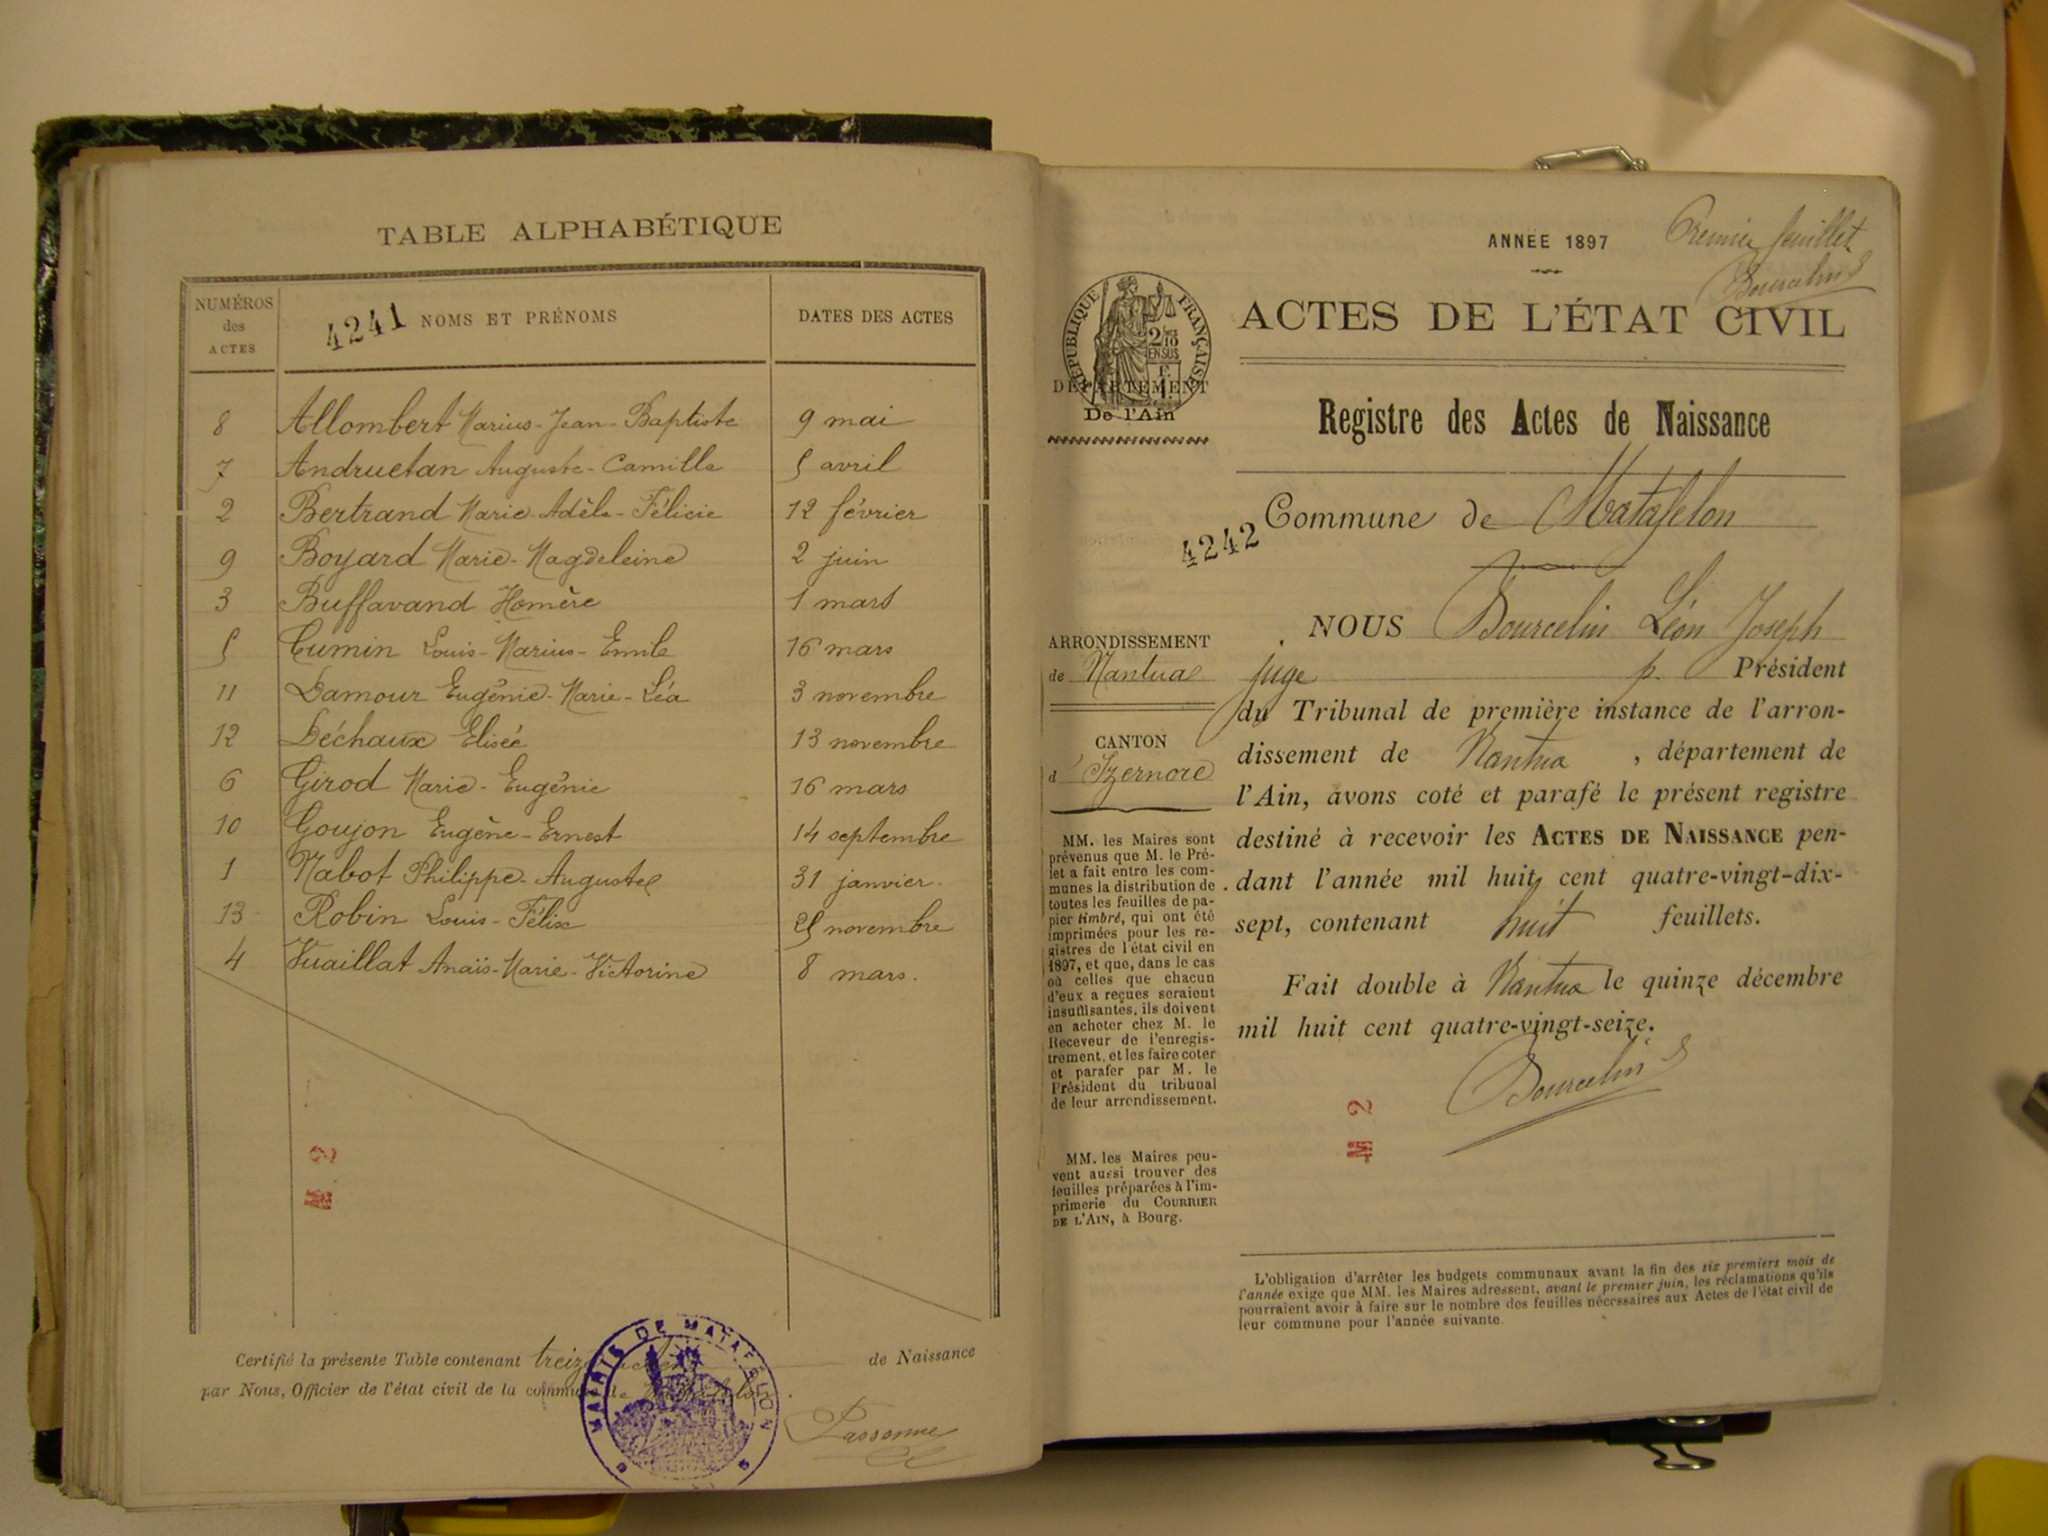 TABLE ALPHABÉTIQUE
NUMÉROS des ACTES
4241
NOMS ET PRÉNOMS
DATES DES ACTES
8 Allombert Marius-Jean-Baptiste 9 mai
7 Andruetan Auguste-Camille 5 avril
2 Bertrand Marie-Adèle-Félicie 12 février
9 Boyard Marie-Magdeleine 2 juin
3 Buffavand Homère 1 mars
5 Cumin Louis-Marius-Emile 16 mars
11 Damour Eugénie-Marie-Léa 3 novembre
12 Déchaux Elisée 13 novembre
6 Girod Marie-Eugénie 16 mars
10 Goujon Eugène-Ernest 14 septembre
1 Nabot Philippe-Auguste 31 janvier
13 Robin Louis-Félix 25 novembre
4 Vuaillat Anaïs-Marie-Victorine 8 mars.
M. 2
Certifié la présente Table contenant treize de Naissance
par Nous, Officier de l'état civil de la commune de
MAIRIE DE MATAFELON
ANNÉE 1897
Premier feuillet
Bourcelin
RÉPUBLIQUE FRANÇAISE
2/10 EN SUS
ACTES DE L'ÉTAT CIVIL
DÉPARTEMENT
De l'Ain
Registre des Actes de Naissance
Commune de Matafelon
4242
ARRONDISSEMENT
de Nantua
CANTON
d'Izernore
MM. les Maires sont
prévenus que M. le Pré-
fet a fait entre les com-
munes la distribution de
toutes les feuilles de pa-
pier timbré, qui ont été
imprimées pour les re-
gistres de l'état civil en
1897, et que, dans le cas
où celles que chacun
d'eux a reçues seraient
insuffisantes, ils doivent
en acheter chez M. le
Receveur de l'enregis-
trement, et les faire coter
et parafer par M. le
Président du tribunal
de leur arrondissement.
MM. les Maires peu-
vent aussi trouver des
feuilles préparées à l'im-
primerie du COURRIER
DE L'AIN, à Bourg.
NOUS Bourcelin Léon Joseph
juge p. Président
du Tribunal de première instance de l'arron-
dissement de Nantua, département de
l'Ain, avons coté et parafé le présent registre
destiné à recevoir les ACTES DE NAISSANCE pen-
dant l'année mil huit cent quatre-vingt-dix-
sept, contenant huit feuillets.
Fait double à Nantua le quinze décembre
mil huit cent quatre-vingt-seize.
Bourcelin
M 2
L'obligation d'arrêter les budgets communaux avant la fin des six premiers mois de
l'année exige que MM. les Maires adressent, avant le premier juin, les réclamations qu'ils
pourraient avoir à faire sur le nombre des feuilles nécessaires aux Actes de l'état civil de
leur commune pour l'année suivante.